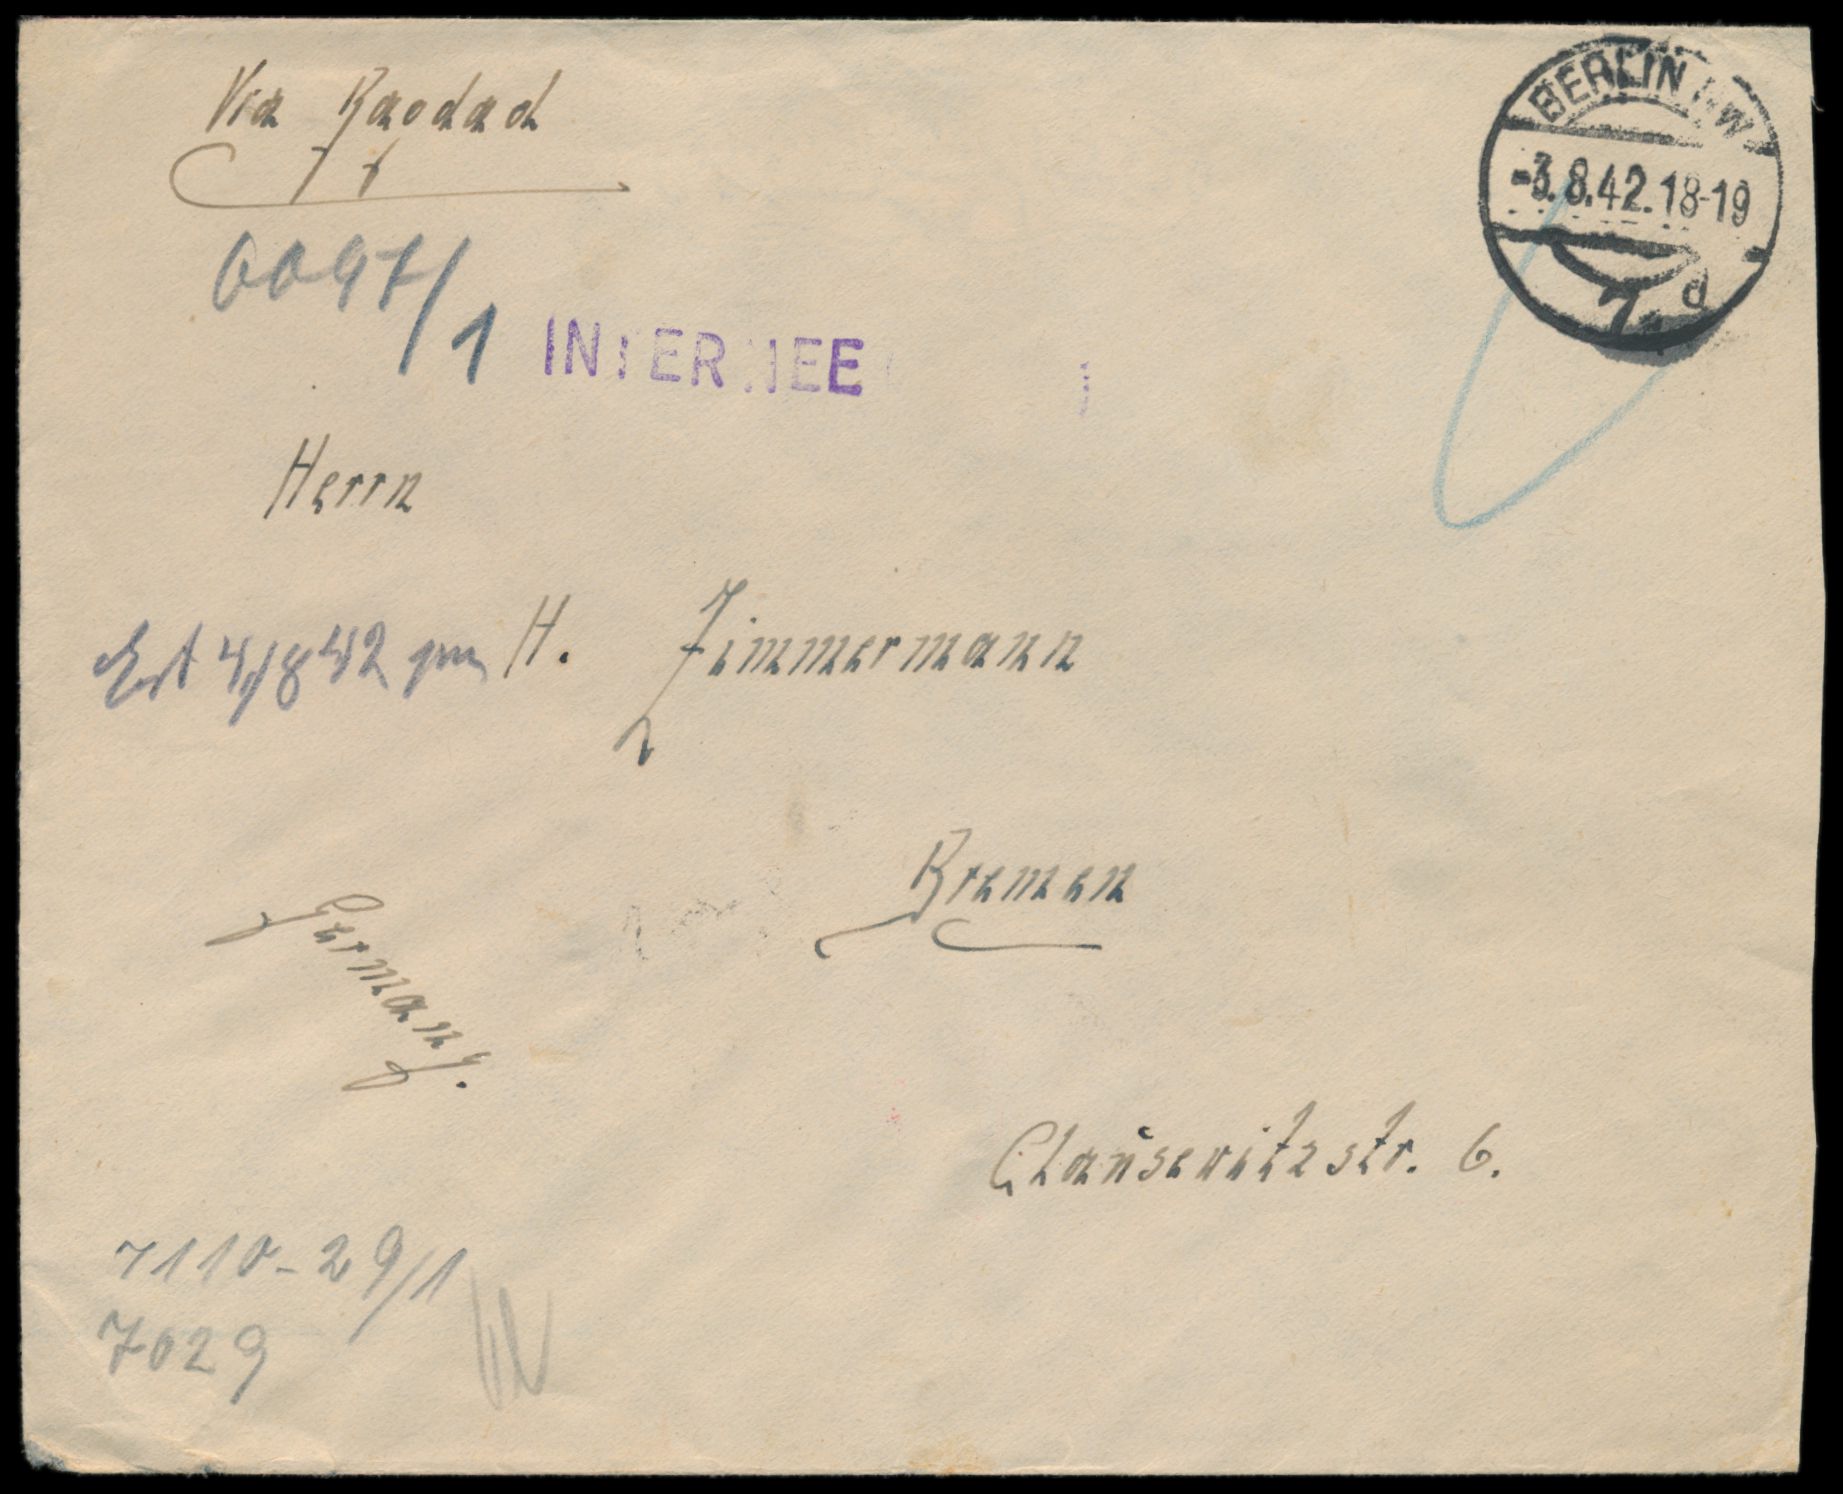 Via Bagdad
BERLIN NW
-3.8.42.18-19
d
0097/1
INTERNEE
Herrn
4/8 42
H. Zimmermann
Bremen
Germany.
Clausewitzstr. 6.
7110-29/1
7029